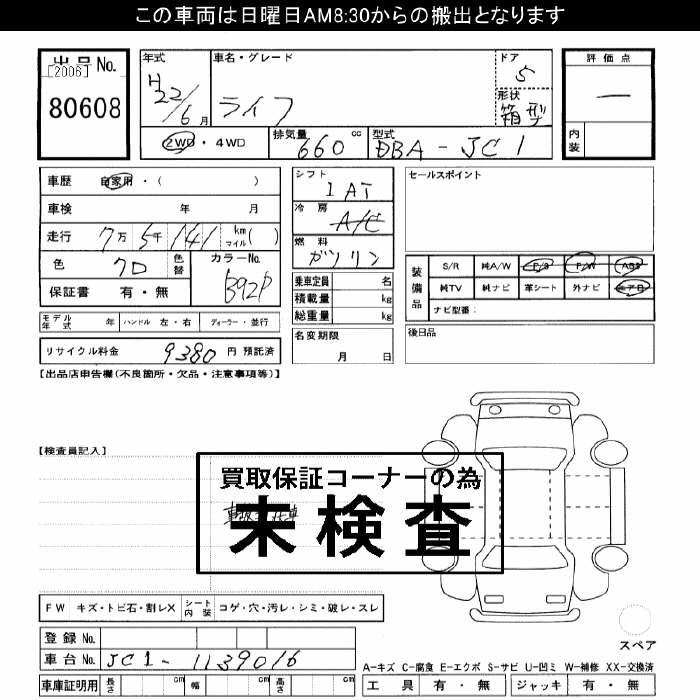 この車両は日曜日AM8:30からの搬出となります
出品No.
[2006]
80608
年式
H22/6月
車名・グレード
ライフ
ドア
5
形状
箱型
評価点
ー
内装
2WD・4WD
排気量 660 cc
型式 DBA-JC1
車歴 自家用・( )
車検 年 月
走行 7万5千141 km マイル( )
色 クロ 色替
カラーNo. B92P
保証書 有・無
シフト
IAT
冷房
A/C
燃料
ガソリン
乗車定員 名
積載量 kg
総重量 kg
セールスポイント
装備品
S/R 純A/W P/S P/W ABS
純TV 純ナビ 革シート 外ナビ エアB
ナビ型番:
モデル年式 年 ハンドル 左・右 ディーラー・並行
名変期限
月 日
後日品
リサイクル料金 9380 円 預託済
【出品店申告欄(不良箇所・欠品・注意事項等)】
【検査員記入】
買取保証コーナーの為
未検査
FW キズ・トビ石・割レX シート内装 コゲ・穴・汚レ・シミ・破レ・スレ
登録No.
車台No. JC1-1139016
車庫証明用 長さ cm 幅 cm 高さ cm
スペア
A-キズ C-腐食 E-エクボ S-サビ U-凹ミ W-補修 XX-交換済
工具 有・無 ジャッキ 有・無